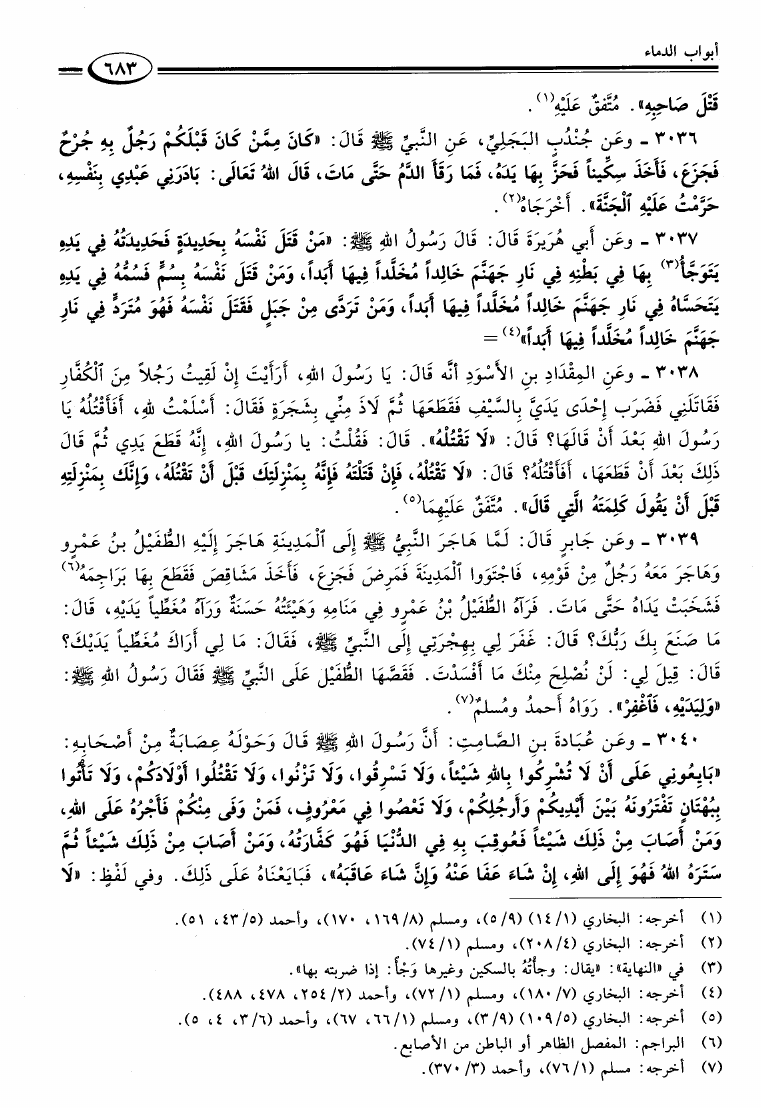 أبواب الدماء
٦٨٣
قَتْلَ صَاحِبِهِ». مُتَّفقٌ عَلَيْهِ(١).
٣٠٣٦ - وعَن جُنْدُبٍ البَجَليِّ، عَنِ النَّبيِّ ﷺ قَالَ: «كَانَ مِمَّنْ كَانَ قَبْلَكُمْ رَجُلٌ بِهِ جُرْحٌ
فَجَزِعَ، فَأَخَذَ سِكِّيناً فَحَزَّ بِهَا يَدَهُ، فَمَا رَقَأَ الدَّمُ حَتَّى مَاتَ، قَالَ اللهُ تَعَالَى: بَادَرَنِي عَبْدِي بِنَفْسِهِ،
حَرَّمْتُ عَلَيْهِ ٱلْجَنَّةَ». أَخْرَجَاهُ(٢).
٣٠٣٧ - وعَن أَبي هُرَيرَةَ قَالَ: قَالَ رَسُولُ اللهِ ﷺ: «مَنْ قَتَلَ نَفْسَهُ بِحَدِيدَةٍ فَحَدِيدَتُهُ فِي يَدِهِ
يَتَوَجَّأُ(٣) بِهَا فِي بَطْنِهِ فِي نَارِ جَهَنَّمَ خَالِداً مُخَلَّداً فِيهَا أَبَداً، وَمَنْ قَتَلَ نَفْسَهُ بِسُمٍّ فَسُمُّهُ فِي يَدِهِ
يَتَحَسَّاهُ فِي نَارِ جَهَنَّمَ خَالِداً مُخَلَّداً فِيهَا أَبَداً، وَمَنْ تَرَدَّى مِنْ جَبَلٍ فَقَتَلَ نَفْسَهُ فَهُوَ مُتَرَدٍّ فِي نَارِ
جَهَنَّمَ خَالِداً مُخَلَّداً فِيهَا أَبَداً»(٤) =
٣٠٣٨ - وعَنِ المِقْدَادِ بنِ الأَسْوَدِ أنَّه قَالَ: يَا رَسُولَ اللهِ، أَرَأَيْتَ إِنْ لَقِيتُ رَجُلاً مِنَ ٱلْكُفَّارِ
فَقَاتَلَنِي فَضَرَبَ إِحْدَى يَدَيَّ بِالسَّيْفِ فَقَطَعَهَا ثُمَّ لَاذَ مِنِّي بِشَجَرَةٍ فَقَالَ: أَسْلَمْتُ لِلهِ، أَفَأَقْتُلُهُ يَا
رَسُولَ اللهِ بَعْدَ أَنْ قَالَهَا؟ قَالَ: «لَا تَقْتُلْهُ». قَالَ: فَقُلْتُ: يا رَسُولَ اللهِ، إِنَّهُ قَطَعَ يَدِي ثُمَّ قَالَ
ذَلِكَ بَعْدَ أَنْ قَطَعَهَا، أَفَأَقْتُلُهُ؟ قَالَ: «لَا تَقْتُلْهُ، فَإِنْ قَتَلْتَهُ فَإِنَّهُ بِمَنْزِلَتِكَ قَبْلَ أَنْ تَقْتُلَهُ، وَإِنَّكَ بِمَنْزِلَتِهِ
قَبْلَ أَنْ يَقُولَ كَلِمَتَهُ الَّتِي قَالَ». مُتَّفَقٌ عَلَيْهِمَا(٥).
٣٠٣٩ - وعَن جَابرٍ قَالَ: لَمَّا هَاجَرَ النَّبِيُّ ﷺ إِلَى ٱلْمَدِينَةِ هَاجَرَ إِلَيْهِ الطُّفَيْلُ بنُ عَمْرٍو
وَهَاجَرَ مَعَهُ رَجُلٌ مِنْ قَوْمِهِ، فَاجْتَوَوا ٱلْمَدِينَةَ فَمَرِضَ فَجَزِعَ، فَأَخَذَ مَشَاقِصَ فَقَطَعَ بِهَا بَرَاجِمَهُ(٦)
فَشَخَبَتْ يَدَاهُ حَتَّى مَاتَ. فَرَآهُ الطُّفَيْلُ بْنُ عَمْرٍو فِي مَنَامِهِ وَهَيْئَتُهُ حَسَنَةٌ وَرَآهُ مُغَطِّياً يَدَيْهِ، قَالَ:
مَا صَنَعَ بِكَ رَبُّكَ؟ قَالَ: غَفَرَ لِي بِهِجْرَتِي إِلَى النَّبِيِّ ﷺ، فَقَالَ: مَا لِي أَرَاكَ مُغَطِّياً يَدَيْكَ؟
قَالَ: قِيلَ لِي: لَنْ نُصْلِحَ مِنْكَ مَا أَفْسَدْتَ. فَقَصَّهَا الطُّفَيْلُ عَلَى النَّبِيِّ ﷺ فَقَالَ رَسُولُ اللهِ ﷺ:
«وَلِيَدَيْهِ، فَٱغْفِرْ». رَوَاهُ أَحمدُ ومُسلمٌ(٧).
٣٠٤٠ - وعَن عُبَادَةَ بنِ الصَّامِتِ: أَنَّ رَسُولَ اللهِ ﷺ قَالَ وَحَوْلَهُ عِصَابَةٌ مِنْ أَصْحَابِهِ:
«بَايَعُونِي عَلَى أَنْ لَا تُشْرِكُوا بِاللهِ شَيْئاً، وَلَا تَسْرِقُوا، وَلَا تَزْنُوا، وَلَا تَقْتُلُوا أَوْلَادَكُمْ، وَلَا تَأْتُوا
بِبُهْتَانٍ تَفْتَرُونَهُ بَيْنَ أَيْدِيكُمْ وَأَرجُلِكُمْ، وَلَا تَعْصُوا فِي مَعْرُوفٍ، فَمَنْ وَفَى مِنْكُمْ فَأَجْرُهُ عَلَى اللهِ،
وَمَنْ أَصَابَ مِنْ ذَلِكَ شَيْئاً فَعُوقِبَ بِهِ فِي الدُّنْيَا فَهُوَ كَفَّارَتُهُ، وَمَنْ أَصَابَ مِنْ ذَلِكَ شَيْئاً ثُمَّ
سَتَرَهُ اللهُ فَهُوَ إِلَى اللهِ، إِنْ شَاءَ عَفَا عَنْهُ وَإِنَّ شَاءَ عَاقَبَهُ»، فَبَايَعْنَاهُ عَلَى ذَلِكَ. وفي لَفْظٍ: «لَا
(١) أخرجه: البخاري (١/١٤) (٩/٥)، ومسلم (٨/١٦٩، ١٧٠)، وأحمد (٥/٤٣، ٥١).
(٢) أخرجه: البخاري (٤/٢٠٨)، ومسلم (١/٧٤).
(٣) في «النهاية»: «يقال: وجأتُهُ بالسكين وغيرها وَجْأً: إذا ضربته بها».
(٤) أخرجه: البخاري (٧/١٨٠)، ومسلم (١/٧٢)، وأحمد (٢/٢٥٤، ٤٧٨، ٤٨٨).
(٥) أخرجه: البخاري (٥/١٠٩) (٩/٣)، ومسلم (١/٦٦، ٦٧)، وأحمد (٦/٣، ٤، ٥).
(٦) البراجم: المفصل الظاهر أو الباطن من الأصابع.
(٧) أخرجه: مسلم (١/٧٦)، وأحمد (٣/٣٧٠).